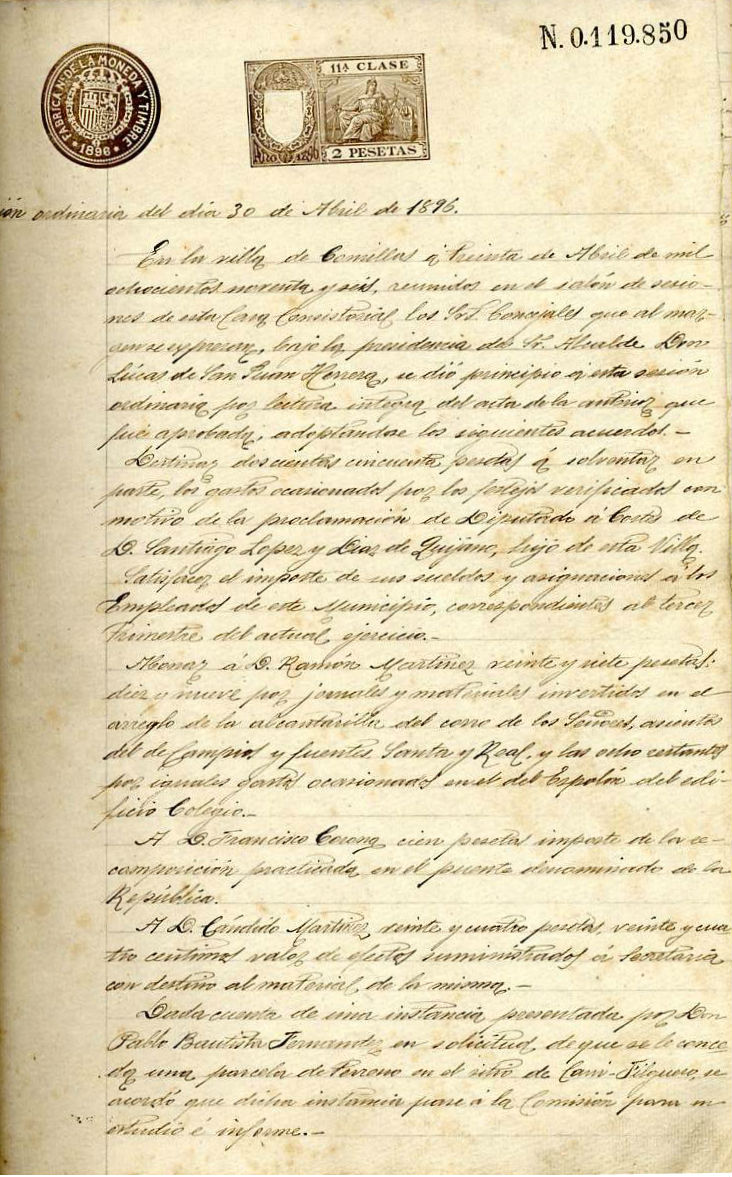 N. 0.119.850
FABRICA N. DE LA MONEDA Y TIMBRE
* 1896 *
11ª CLASE
AÑO D 1896
2 PESETAS
ión ordinaria del día 30 de Abril de 1896.
En la villa de Comillas á treinta de Abril de mil
ochocientos noventa y seis, reunidos en el salón de sesio-
nes de esta Casa Consistorial los Srs. Concejales que al mar-
gen se expresan, bajo la presidencia del Sr. Alcalde Don
Lúcas de San Juan Herrera, se dió principio á esta sesión
ordinaria por lectura íntegra del acta de la anterior que
fué aprobada, adoptandose los siguientes acuerdos.-
Destinar doscientas cincuenta pesetas á solventar en
parte, los gastos ocasionados por los festejos verificados con
motivo de la proclamación de Diputado á Cortes de
D. Santiago Lopez y Diaz de Quijano, hijo de esta Villa.
Satisfacer el importe de sus sueldos y asignaciones á los
Empleados de este Municipio, correspondientes al tercer
trimestre del actual ejercicio.-
Abonar á D. Ramón Martinez veinte y siete pesetas:
diez y nueve por jornales y materiales invertidos en el
arreglo de la alcantarilla del corro de los Señores, asientos
del de Campios y fuentes Santa y Real, y las ocho restantes
por iguales gastos ocasionados en el del Espolón del edi-
ficio Colegio.-
A D. Francisco Corona cien pesetas importe de la re-
composición practicada en el puente denominado de la
República.
A D. Cándido Martinez veinte y cuatro pesetas, veinte y cua
tro centimos valor de efectos suministrados á Secretaria
con destino al material de la misma.-
Dada cuenta de una instancia presentada por Don
Pablo Bautista Fernandez en solicitud de que se le conce
da una parcela de terreno en el sitio de se
acordó que dicha instancia pase á la Comisión para su
estudio é informe.-